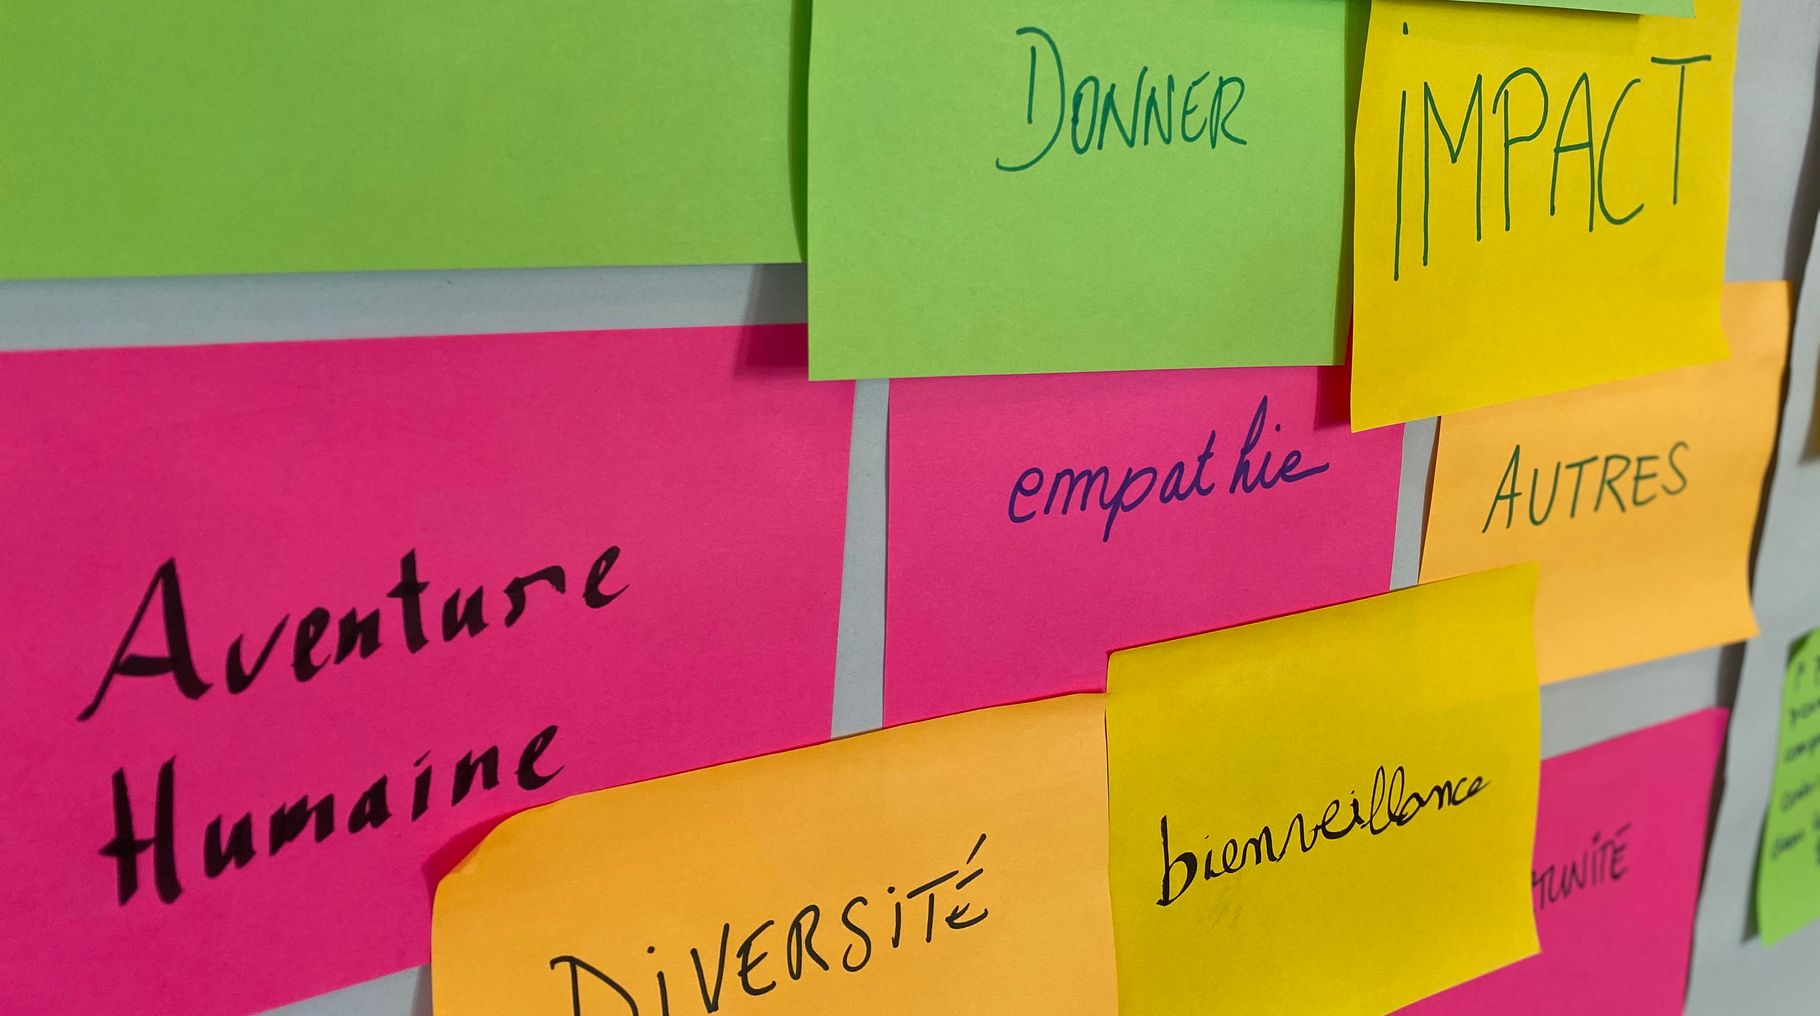 DONNER
iMPACT
empathie
AUTRES
Aventure
Humaine
bienveillance
DiVERSiTÉ
TUNITÉ